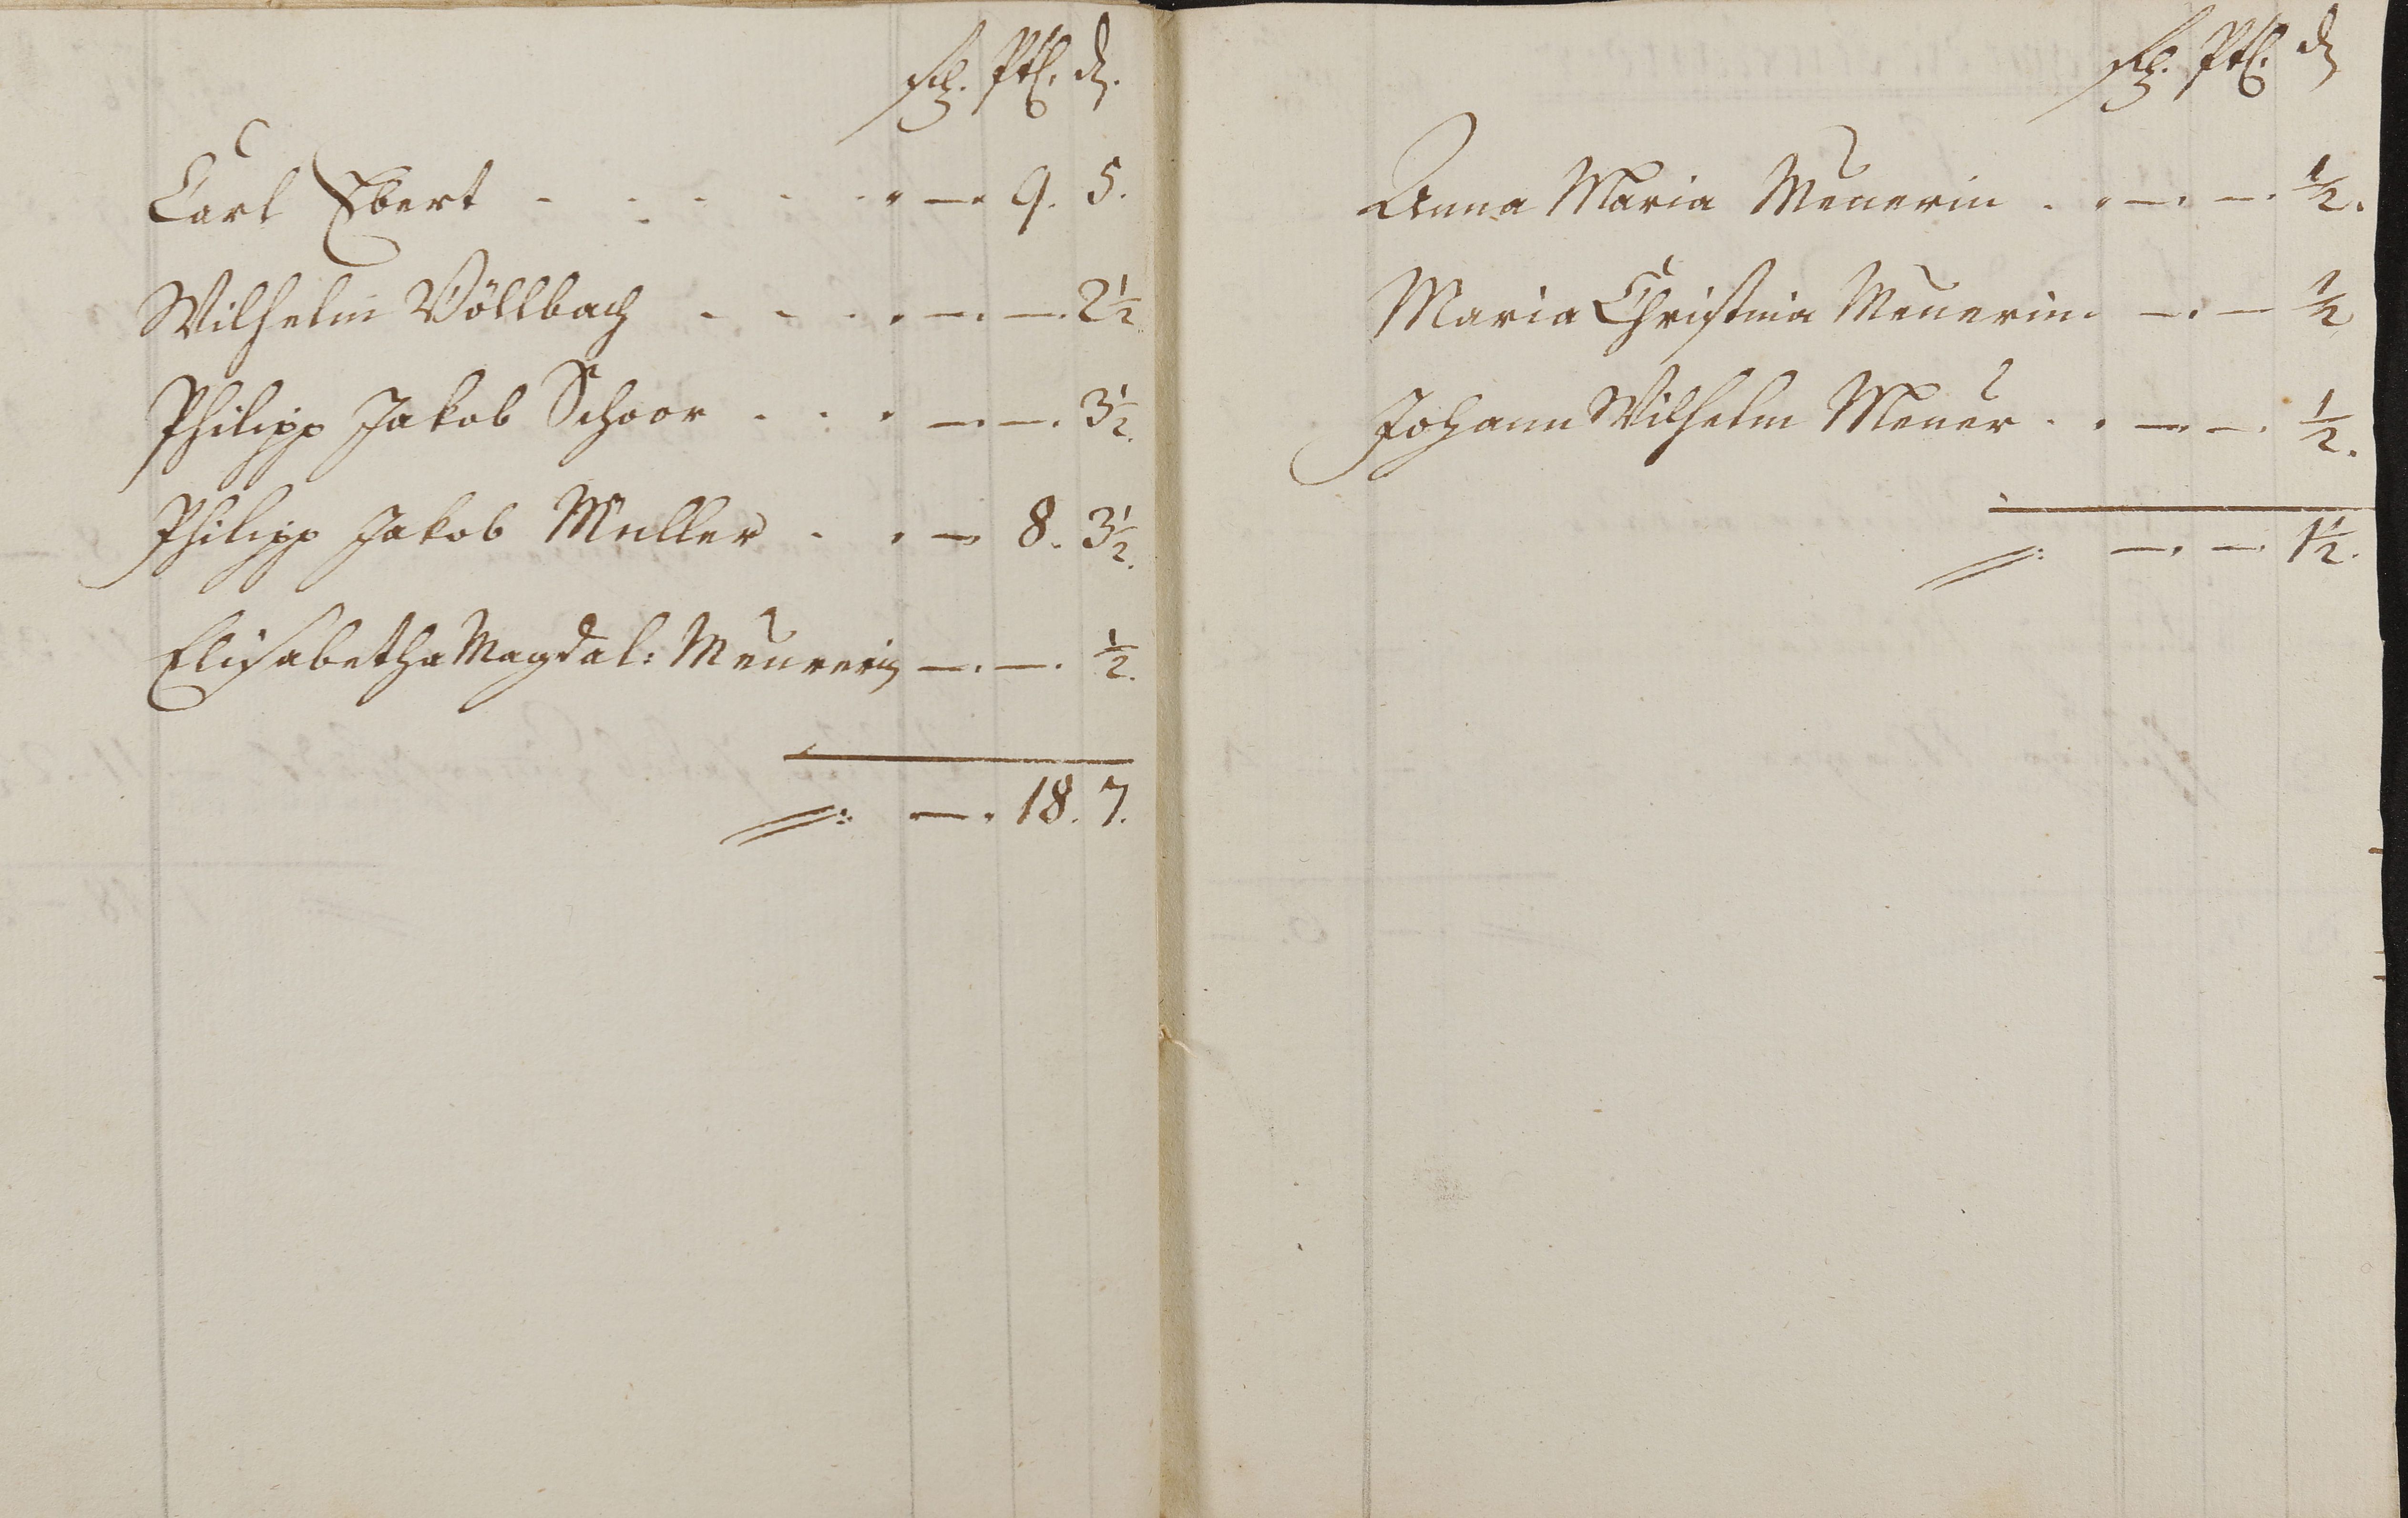 fl. Btz. ₰.
Carl Ebert - - - - - - — 9. 5.
Wilhelm Völlbach - - - - —. —. 2½
Philipp Jakob Schoor - - - —. —. 3½.
Philipp Jakob Muller - - — 8. 3½.
Elisabetha Magdal: Meurerin —. —. ½.
—. 18. 7.
₰
Anna Maria Meuerin - - —. —. ½.
Maria Christina Meuerin —. — ½
Johann Wilhelm Meuer - - — —. ½.
—. —. 1½.